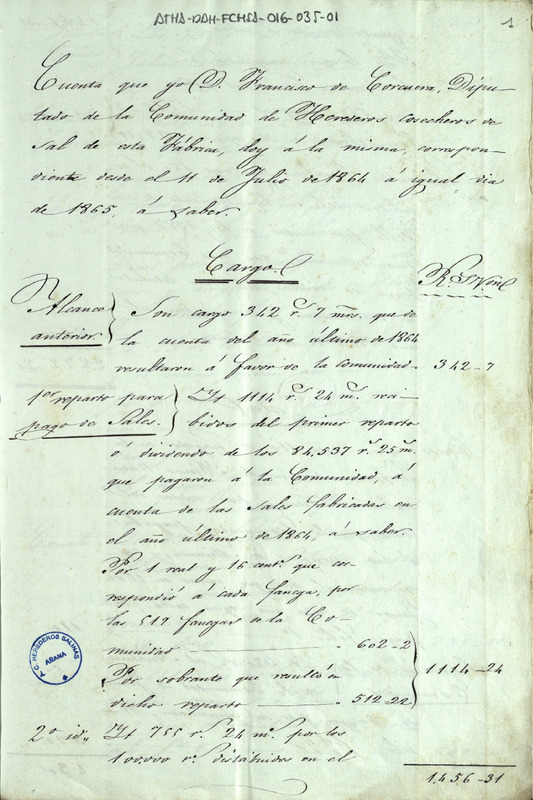 ATHA-DAH-FCHSA-016-035-01
1
Cuenta que yo D. Francisco de Corcuera, Dipu-
tado de la Comunidad de Herederos cosecheros de
Sal de esta Fábrica, doy á la misma, correspon-
diente desde el 11 de Julio de 1864 á igual dia
de 1865, á saber.
Cargo.
Rs Von
Alcance
anterior.
Son cargo 342 r.s 7 mrs. que de
la cuenta del año último de 1864
resultaron á favor de la comunidad. 342-7
1er reparto para
pago de Sales.
Yt 1114 r.s 24 m.s reci-
bidos del primer reparto
ó dividendo de los 84,537 r.s 25 m.s
que pagaron á la Comunidad, á
cuenta de las Sales fabricadas en
el año último de 1864, á saber.
Por 1 real y 16 cent.s que cor-
respondió á cada fanega, por
las 519 fanegas de la Co-
munidad 602-2
Por sobrante que resultó en
dicho reparto 512-22
1114-24
2º id.
Yt 755 r.s 24 m.s por los
100.000 r.s distribuidos en el
1,456-31
A. C. HEREDEROS SALINAS
AÑANA